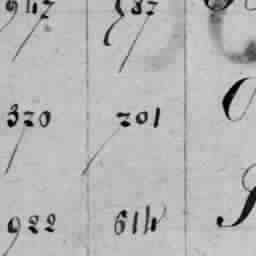 947 587
320 201
922 614